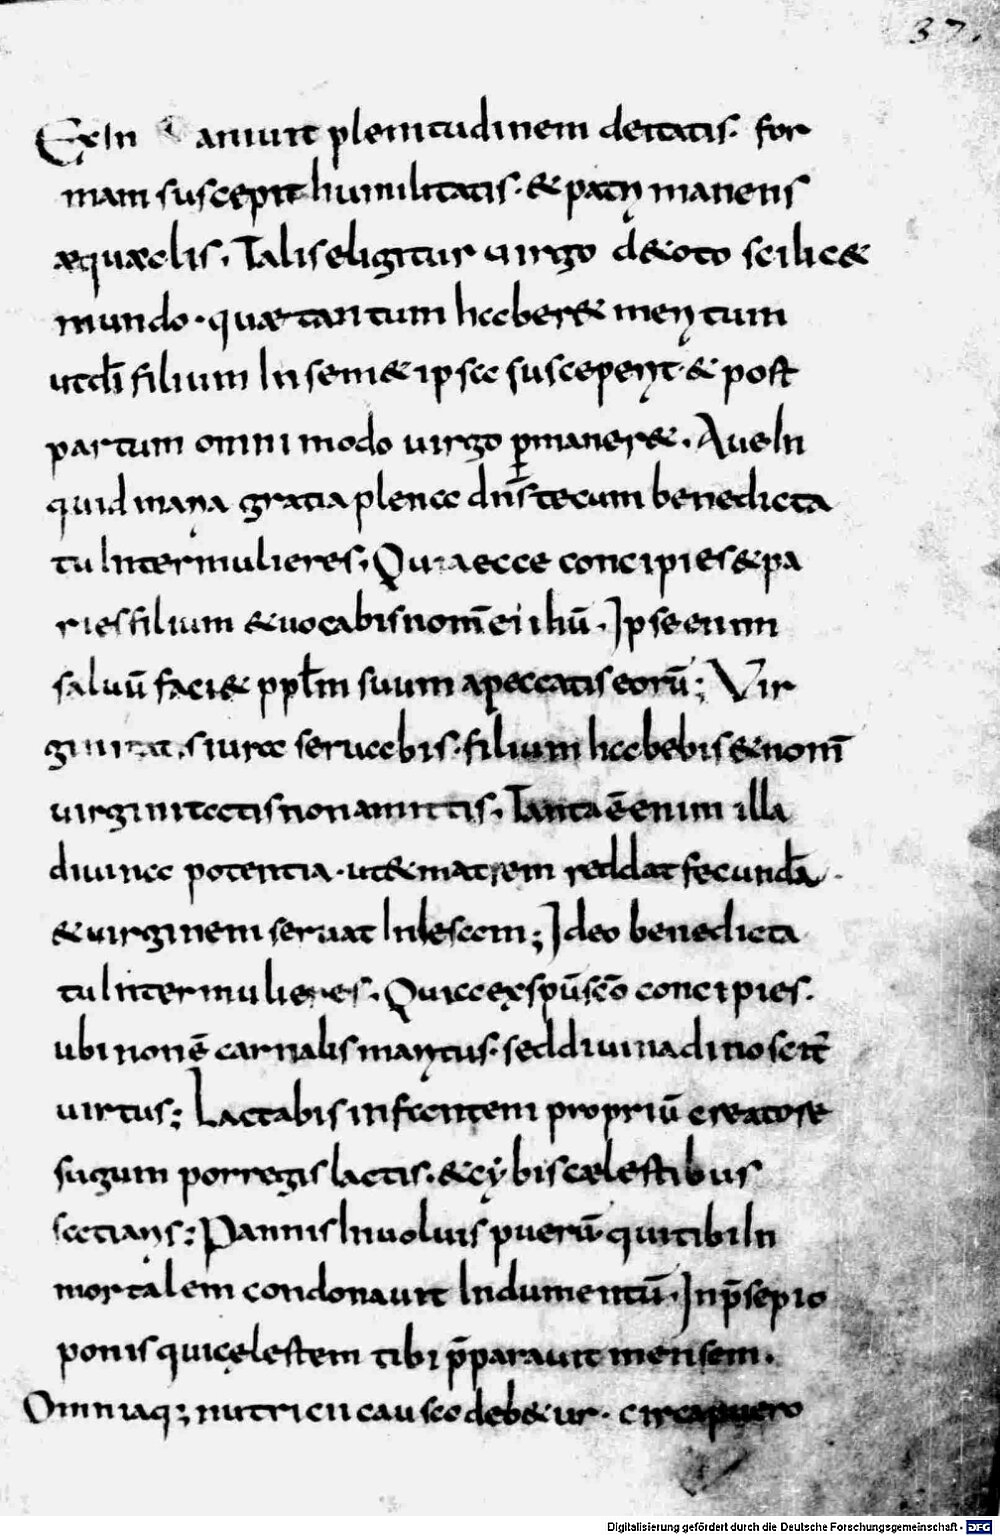 37.
Exin aniuit plenitudinem deitatis. for
mam suscepit humilitatis. & patri manens
æqualis. Talis eligitur uirgo d& oto scilic&
mundo. quæ tantum haber& meritum
ut di filium In sem& ipsa susceperit. & post
partum omnimodo uirgo pmaner&. Aue In
quid maria gratia plena dns tecum benedicta
tu Inter mulieres. Quia ecce concipies & pa
ries filium & uocabis nom̄ ei ihū. Ipse enim
saluū faci& ppl̄m suum a peccatis eorū; Vir
ginitat siura seruabis. filium habebis & nom̄
uirginitatis non amittis. Tanta ē enim illa
diuina potentia. ut & matrem reddat fecundā.
& uirginem seruat Inlesam; Ideo benedicta
tu Inter mulieres. Quia ex spū scō concipies.
ubi non ē carnalis maritus. sed diuina dinoscit̄
uirtus; Lactabis infantem propriū creatore
sugum porregis lactis. & cybis cælestibus
satiaris; Pannis Inuoluis puerū qui tibi In
mortalem condonauit Indumentū. In p̄sepio
ponis qui cęlestem tibi p̄parauit mensam.
Omniaq; nutricii causa deb&ur. circa puero
Digitalisierung gefördert durch die Deutsche Forschungsgemeinschaft - DFG